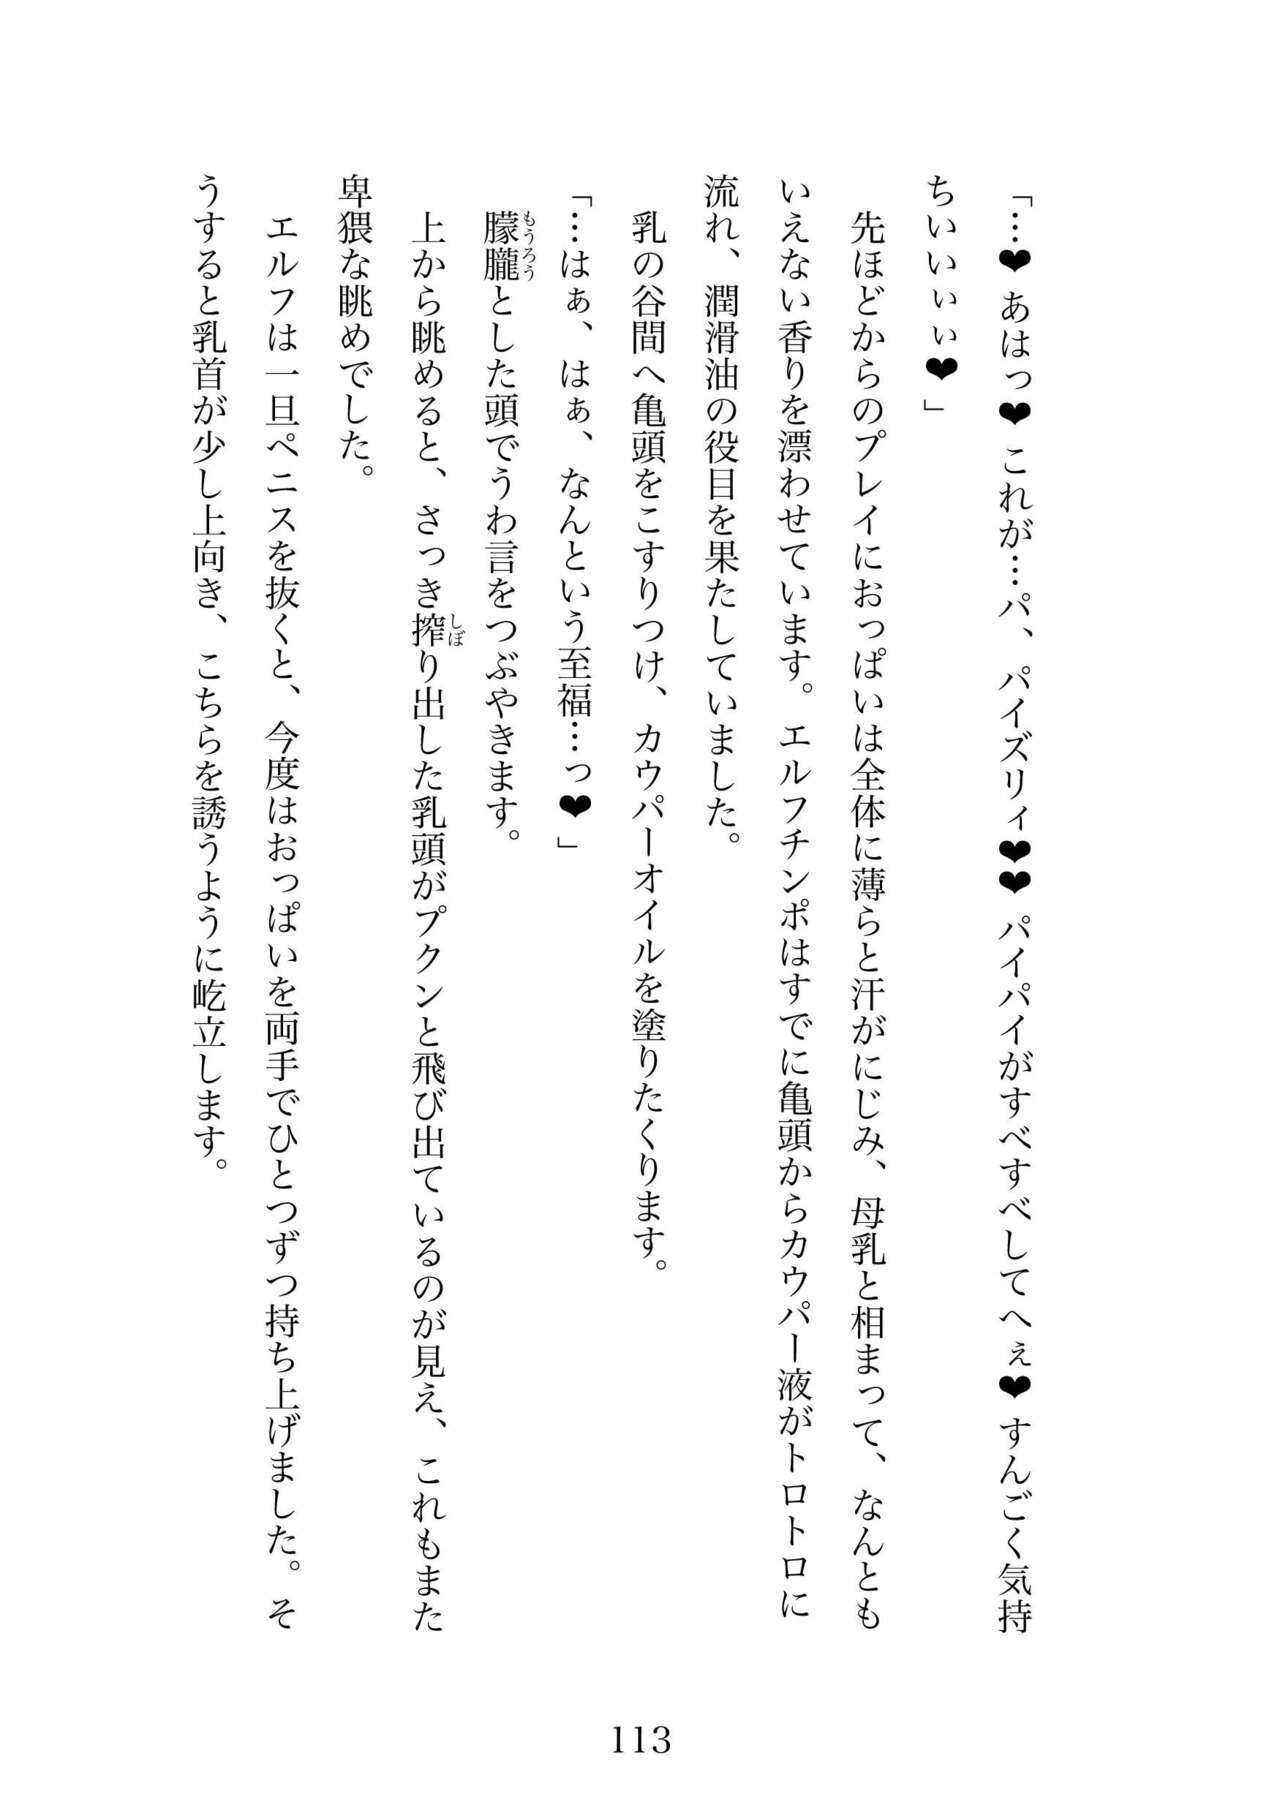 「…❤あはっ❤これが…パ、パイズリィ❤❤パイパイがすべすべしてへぇ❤すんごく気持
ちいいぃぃ❤」
先ほどからのプレイにおっぱいは全体に薄らと汗がにじみ、母乳と相まって、なんとも
いえない香りを漂わせています。エルフチンポはすでに亀頭からカウパー液がトロトロに
流れ、潤滑油の役目を果たしていました。
乳の谷間へ亀頭をこすりつけ、カウパーオイルを塗りたくります。
「…はぁ、はぁ、なんという至福…っ❤」
朦朧もうろうとした頭でうわ言をつぶやきます。
上から眺めると、さっき搾しぼり出した乳頭がプクンと飛び出ているのが見え、これもまた
卑猥な眺めでした。
エルフは一旦ペニスを抜くと、今度はおっぱいを両手でひとつずつ持ち上げました。そ
うすると乳首が少し上向き、こちらを誘うように屹立します。
113